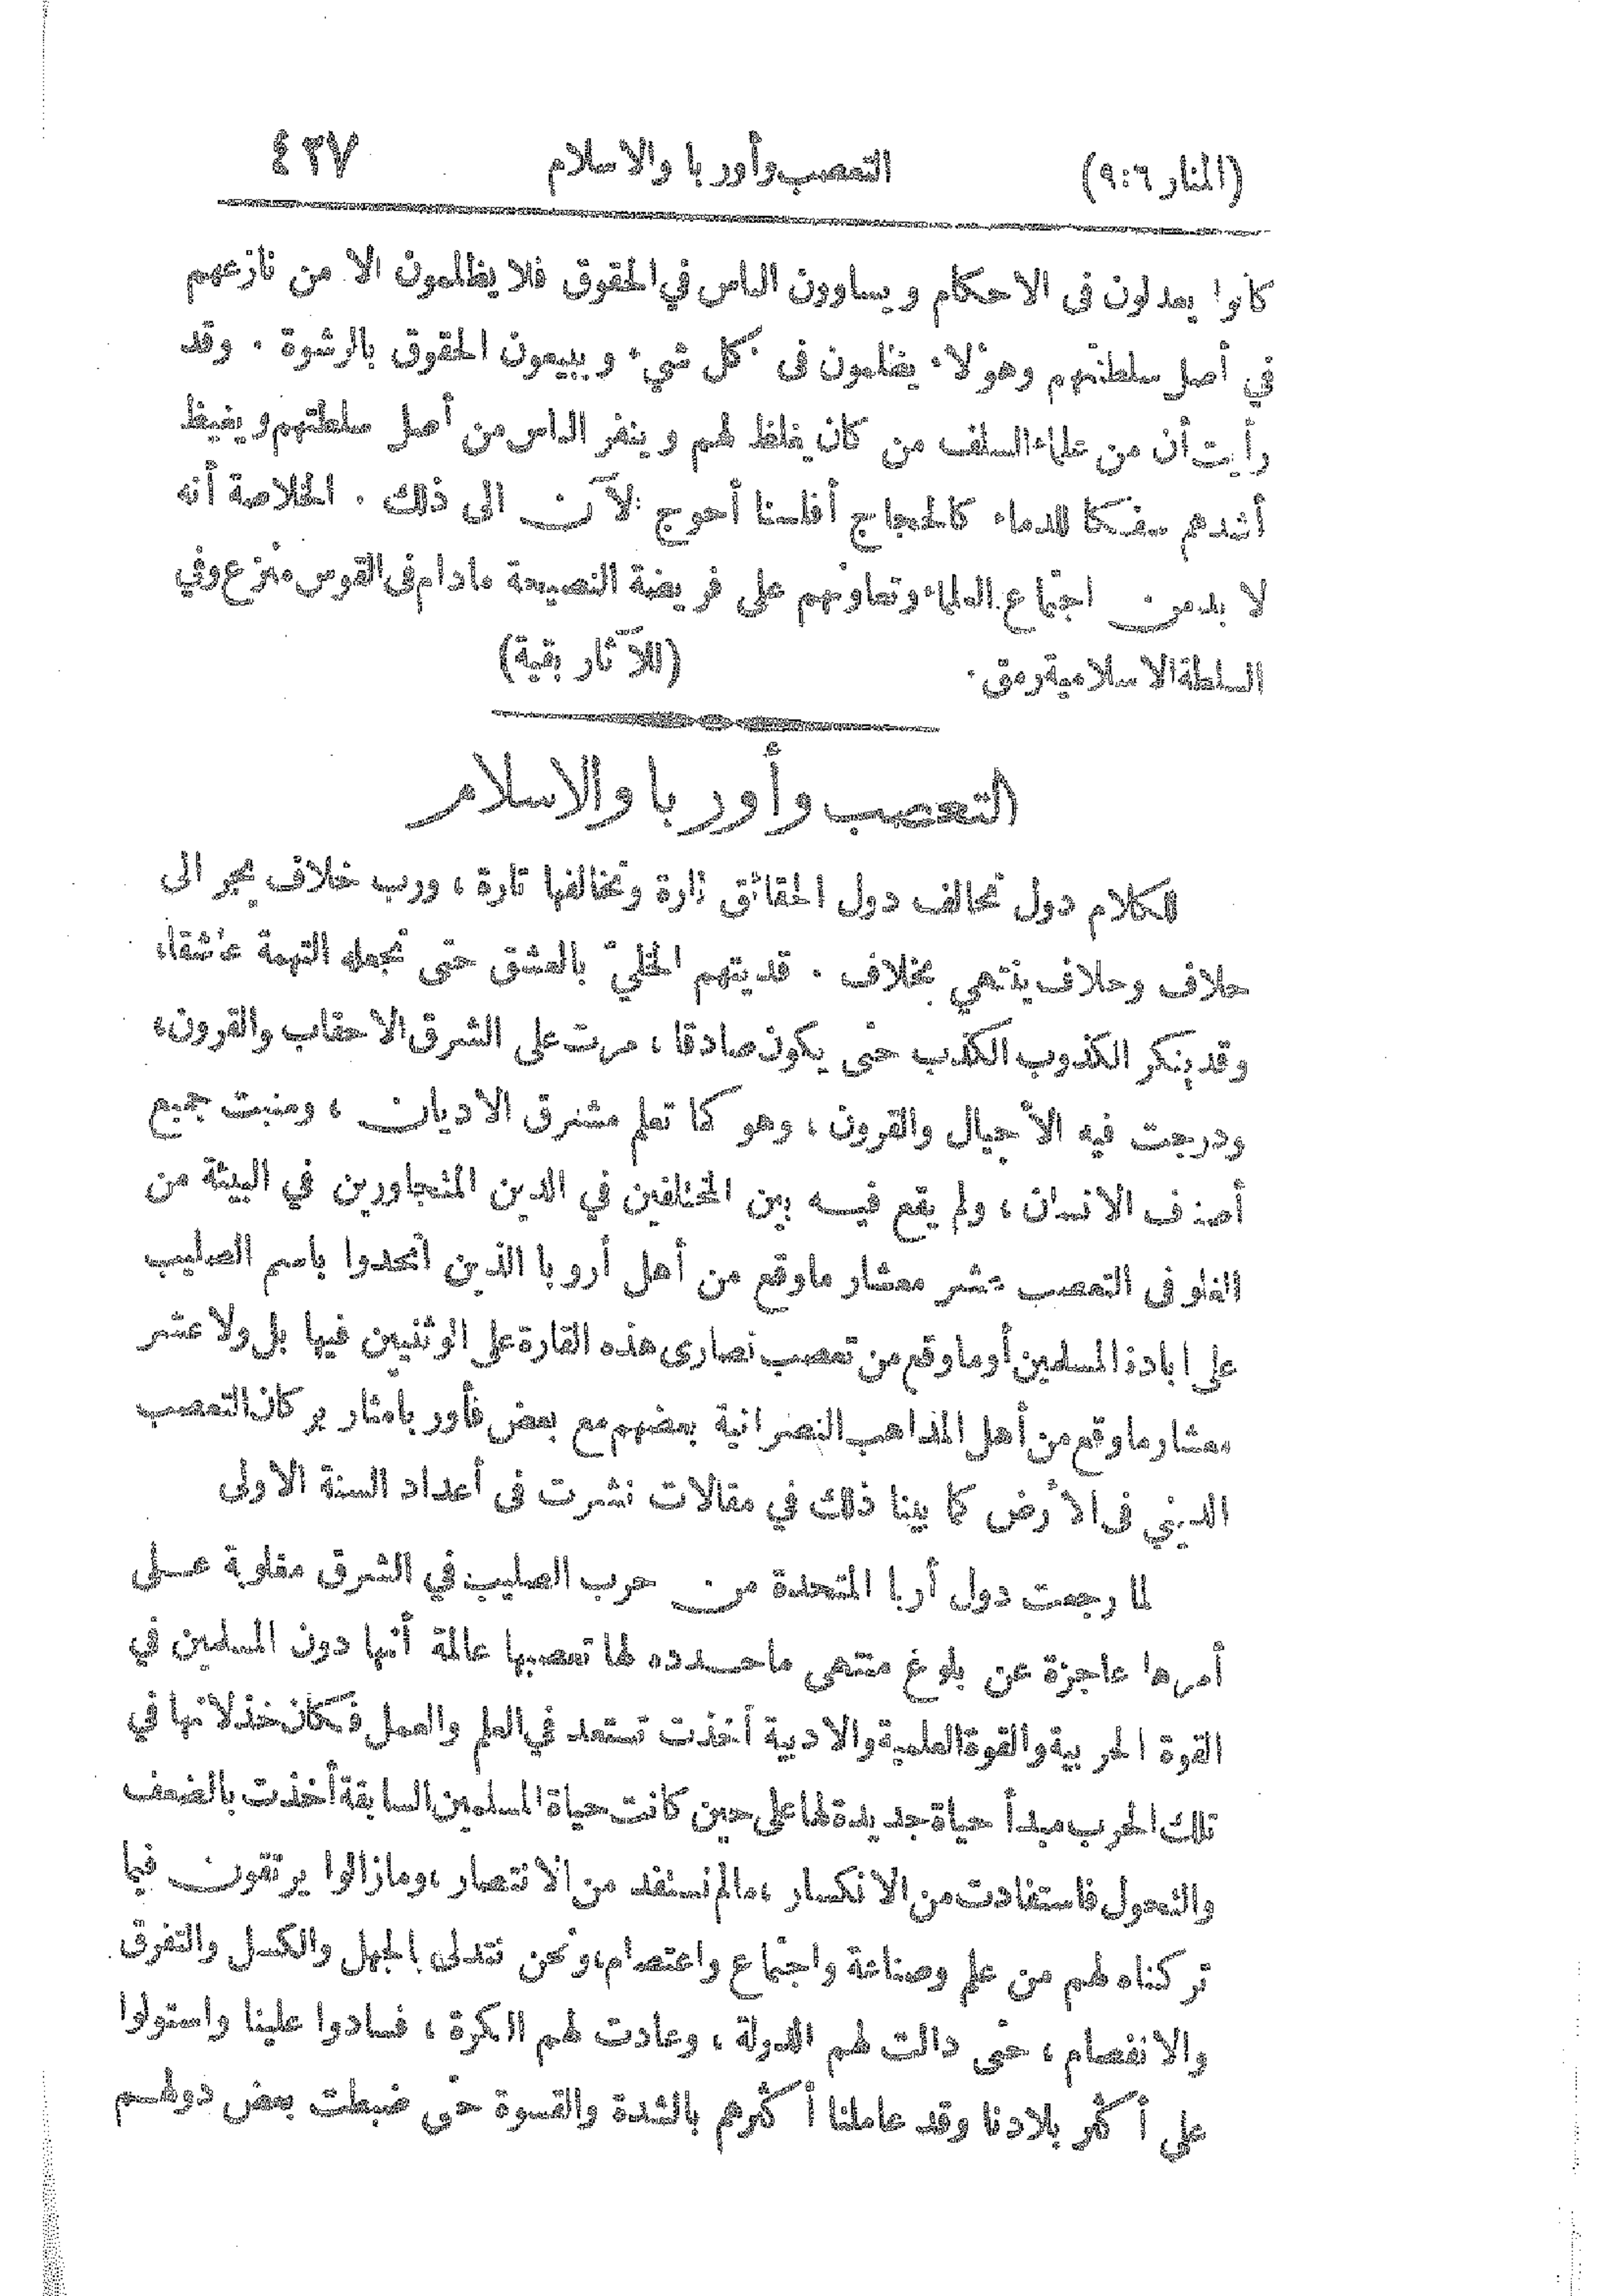 (المنار ٦:٩) التعصب وأوربا والاسلام ٤٢٧
كانوا يعدلون فى الاحكام ويساوون الناس في الحقوق فلا يظلمون الا من نازعهم
في أصل سلطتهم وهؤلاء يظلمون فى كل شيء ويبيعون الحقوق بالرشوة . وقد
رأيت أن من علماء السلف من كان يغلظ لهم وينفر الناس من أهل سلطتهم ويغيظ
أشدهم سفكا للدماء كالحجاج أفلسنا أحوج الآن الى ذلك . الخلاصة أنه
لا بد من اجتماع العلماء وتعاونهم على فريضة النصيحة مادام فى القوس منزع وفي
السلطة الاسلامية رمق . (للآثار بقية)
التعصب وأوربا والاسلام
للكلام دول تحالف دول الحقائق تارة وتخالفها تارة ، ورب خلاف يجر الى
حلاف وحلاف ينتهي بخلاف . قد يتهم الخليّ بالعشق حتى تجعله التهمة عاشقا،
وقد ينكر الكذوب الكذب حتى يكون صادقا ، مرت على الشرق الاحقاب والقرون،
ودرجت فيه الأجيال والقرون ، وهو كما تعلم مشرق الاديان ، ومنبت جميع
أصناف الانسان ، ولم يقع فيه بين المختلفين في الدين المتجاورين في البيئة من
الغلو فى التعصب عشر معشار ماوقع من أهل أروبا الذين اتحدوا باسم الصليب
على ابادة المسلمين أو ماوقع من تعصب نصارى هذه القارة على الوثنيين فيها بل ولا عشر
معشار ماوقع من أهل المذاهب النصرانية بعضهم مع بعض فأوربا مثار بركان التعصب
الديني فى الأرض كما بينا ذلك في مقالات نشرت فى أعداد السنة الاولى
لما رجعت دول أربا المتحدة من حرب الصليب في الشرق مغلوبة على
أمرها عاجزة عن بلوغ منتهى ماحدده لها تعصبها عالمة أنها دون المسلمين في
القوة الحربية والقوة العلمية والادبية أخذت تستعد في العلم والعمل فكان خذلانها في
تلك الحرب مبدأ حياة جديدة لها على حين كانت حياة المسلمين السابقة أخذت بالضعف
والتحول فاستفادت من الانكسار ، مالم نستفد من الانتصار ، ومازالوا يرتقون فيما
تركناه لهم من علم وصناعة واجتماع واعتصام، ونحن نتدلى بالجهل والكسل والتفرق
والانفصام ، حتى دالت لهم الدولة ، وعادت لهم الكرة ، فسادوا علينا واستولوا
على أكثر بلادنا وقد عاملنا أكثرهم بالشدة والقسوة حتى ضبطت بعض دولهم